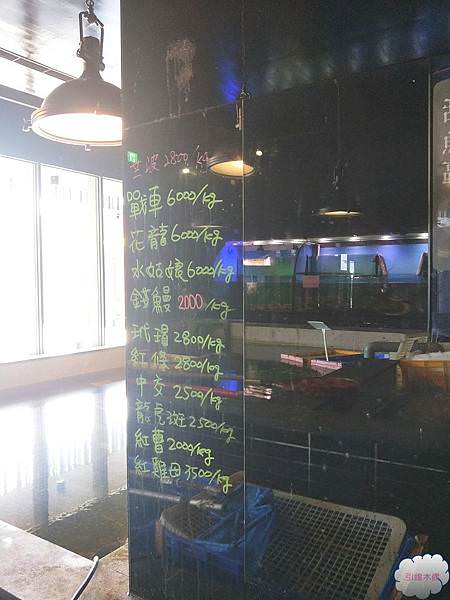 波 2800/kg
戰車 6000/kg
花龍 6000/kg
水姑娘 6000/kg
錢鰻 2000/kg
玳瑁 2800/kg
紅條 2800/kg
中交 2500/kg
龍虎斑 2500/kg
紅曹 2000/kg
紅雞母 1500/kg
引線木偶